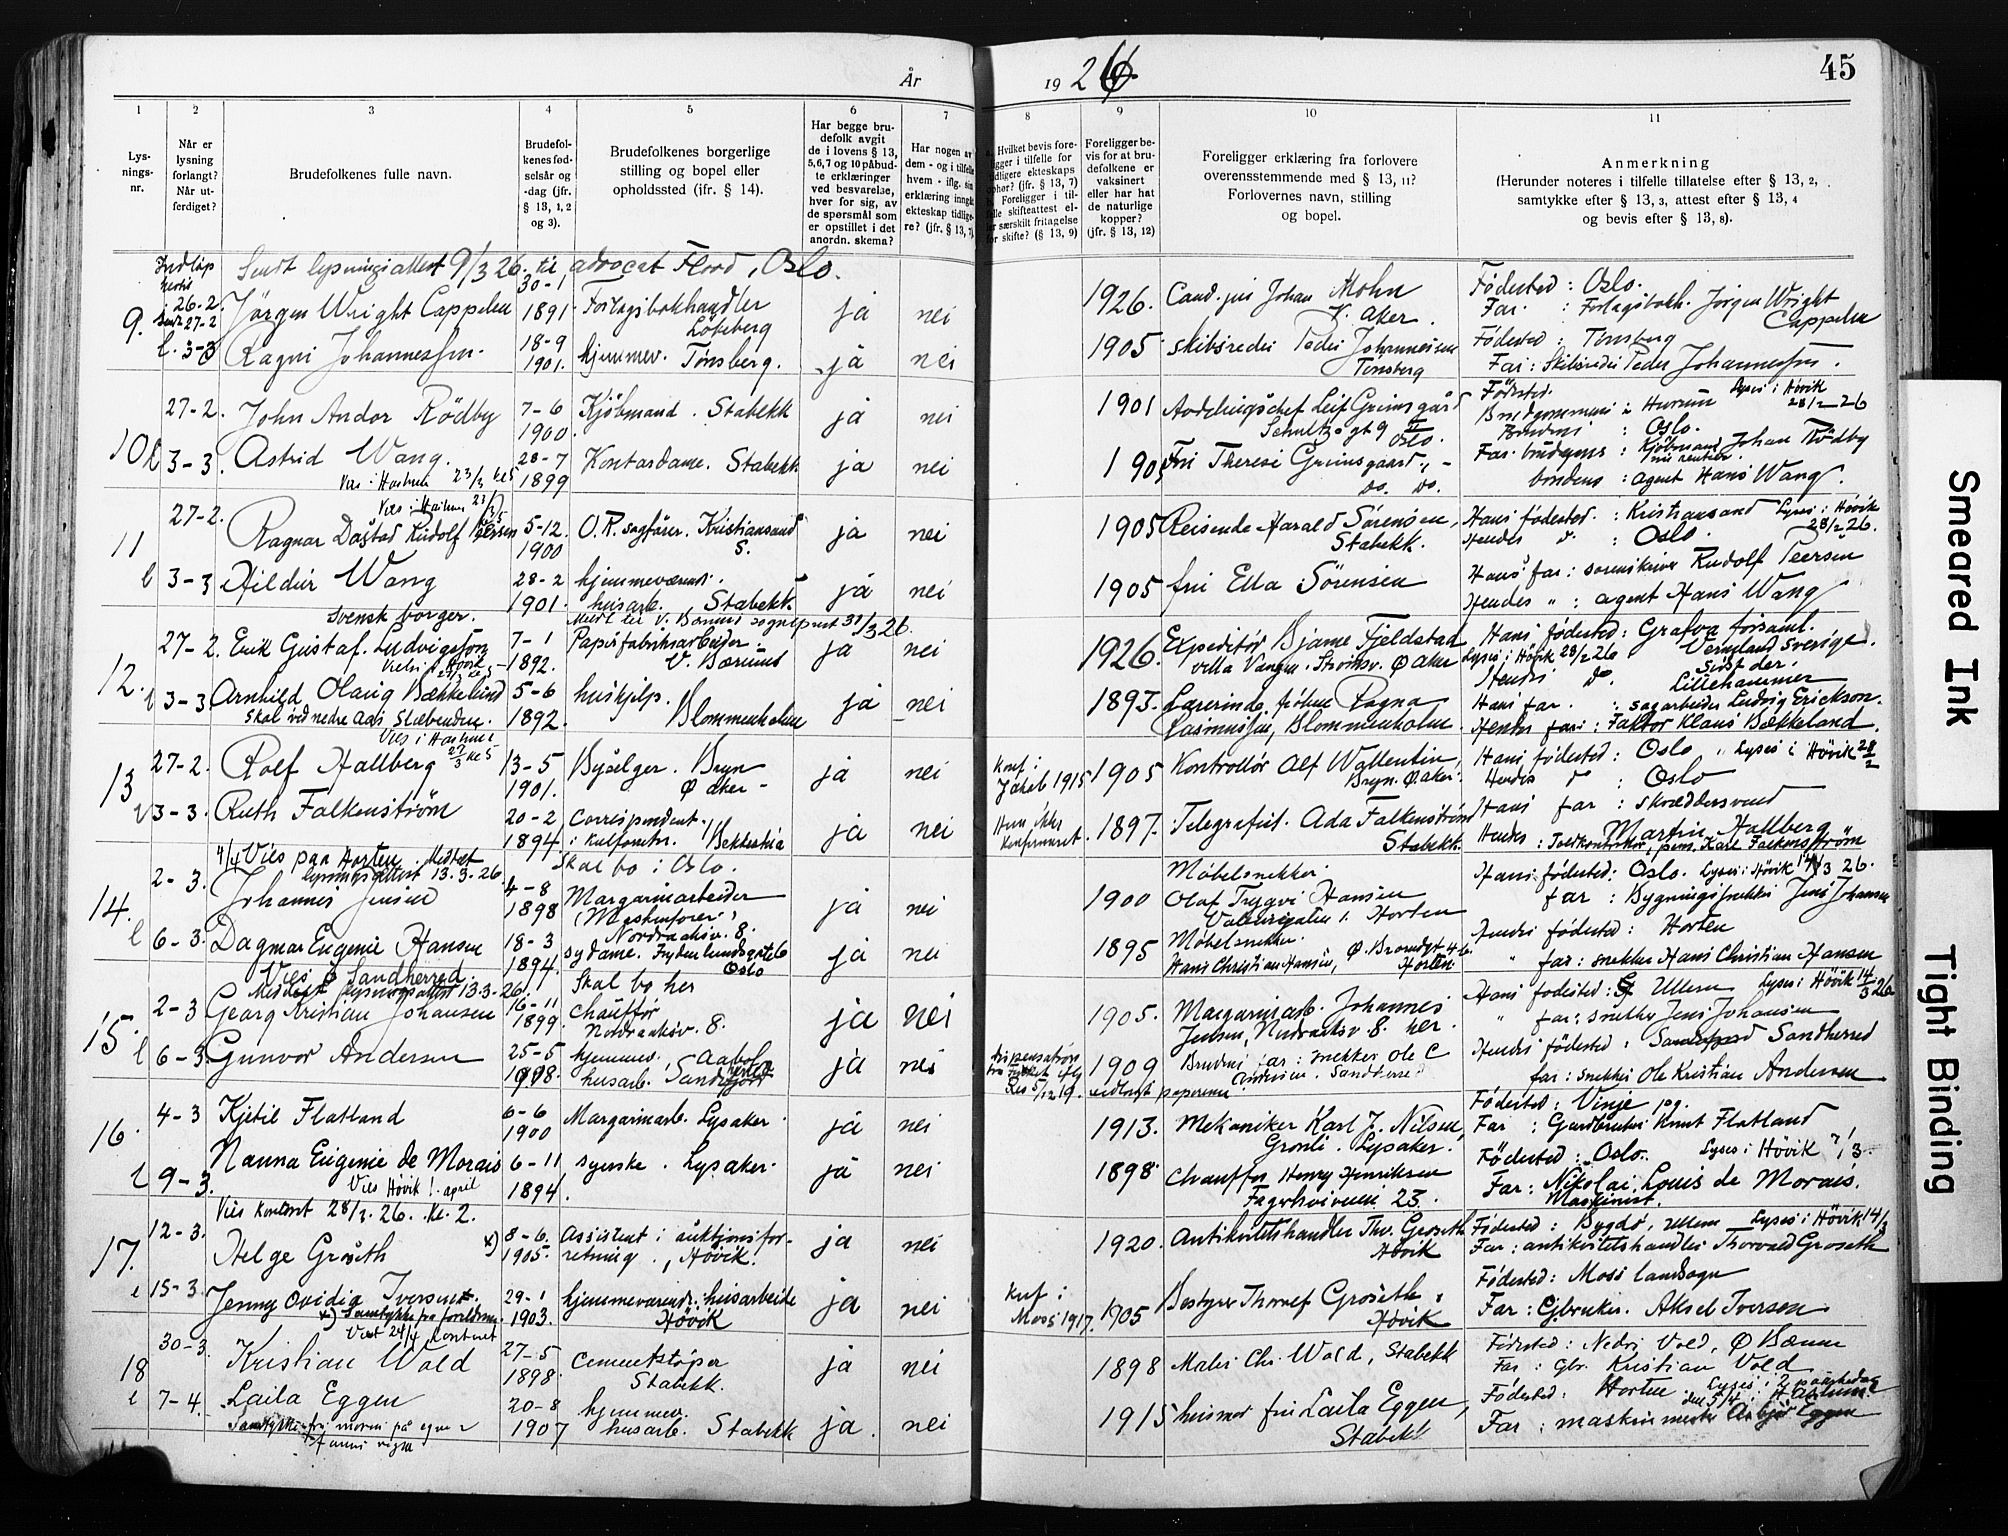 År
19 26
45
1
2
3
4
5
6
7
8
9
10
11
Lys-
nings-
nr.
Når er
lysning
forlangt?
Når ut-
ferdiget?
Brudefolkenes fulle navn.
Brudefol-
kenes fød-
selsår og
-dag (jfr.
§ 13, 1, 2
og 3).
Brudefolkenes borgerlige
stilling og bopel eller
opholdssted (jfr. § 14).
Har begge bru-
defolk avgit
de i lovens § 13,
5, 6, 7 og 10 påbud-
te erklæringer
ved besvarelse,
hver for sig, av
de spørsmål som
er opstillet i det
anordn. skema?
Har nogen av
dem - og i tilfelle
hvem - iflg. sin
erklæring inngå
ekteskap tidlige-
re? (jfr. § 13, 7)
Hvilket bevis fore-
ligger i tilfelle for
tidligere ekteskaps
ophør? (jfr. § 13, 7)
b. Foreligger i til-
felle skifteattest el-
ler særskilt fritagelse
for skifte? (§ 13, 9)
Foreligger be-
vis for at bru-
defolkene er
vaksinert
eller har hat
de naturlige
kopper?
(jfr. § 13, 12)
Foreligger erklæring fra forlovere
overensstemmende med § 13, 11?
Forlovernes navn, stilling
og bopel.
Anmerkning
(Herunder noteres i tilfelle tillatelse efter § 13, 2,
samtykke efter § 13, 3, attest efter § 13, 4
og bevis efter § 13, 8).
Sendt lysningsattest 9/3 26 til advocat Flood, Oslo.
9. 26-2 27-2 Jörgen Wright Cappelen 30-1 1891 Forlagsbokhandler ja nei 1926. Cand. jur Johan Mohn Fødested: Oslo.
V. Aker. Far: Forlagsbokh. Jörgen Wright Cappelen
l. 3-3 Ragni Johannessen. 18-9 1901. hjemmev. Tønsberg. ja nei 1905 Skibsreder Peder Johannessen Tønsberg Fødested: Tønsberg
Far: Skibsreder Peder Johannessen.
10 27-2. John Andor Rödby 7-6 1900. Kjöbmand. Stabekk ja nei 1901 Avdelingschef Leif Grimsgård Fødested.
Schultz's gt 9 II Oslo. Brudgommens: Hurum Lyses i Høvik 28/2 26
Brudens: Oslo.
l 3-3. Astrid Wang. 28-7 1899 Kontordame. Stabekk ja nei 1905 Fru Therese Grimsgaard Far: brudgoms: Kjöbmand Johan Rödby
do. do. brudens: agent Hans Wang.
11 27-2. Ragnar Dåstad Rudolf 5-12. 1900 O.R. sagfører. Kristiansand S. ja nei 1905 Reisende Harald Sørensen, Stabekk. Hans fødested: Kristiansand Lyses i Høvik 28/2 26.
Hendes : Oslo.
l 3-3 Hildur Wang 28-2 1901. hjemmeværende husarb. Stabekk ja nei 1905 fru Ella Sörensen Hans far: sorenskriver Rudolf
Hendes ": agent Hans Wang
svensk borger.
12. 27-2. Erik Gustaf. Ludvigsson 7-1 1892. Papirfabriksarbeider V. Bærum ja nei 1926. Expeditör Bjarne Fjeldstad Hans fødested: Grafva forsaml.
villa Vangen. Strømsv. Ø aker Lyses i Høvik 28/2 26 Vermland Sverige.
l 3-3. Arnhild Olaug Bækkelund 5-6 1892. hushjelp. Blommenholm ja nei 1893. Lærerinde, frøken Ragna Hendes do. Lillehammer
Rasmussen, Blommenholm. Hans far: sagarbeider Ludvig Erickson.
Hendes far: Faktor Klaus Bækkeland.
13 27-2. Rolf Hallberg 13-5 1901. Byselger. Bryn Ø aker ja nei konf: Jakob 1915 1905 Kontrollör Alf Wallentin, Bryn. Ø. aker. Hans fødested: Oslo, Lyses i Høvik 28/2
Hendes : Oslo
3-3. Ruth Falkenström 20-2 1894 Correspondent. Bekkestua ja nei Hun ikke konfirmeret. 1897. Telegrafist. Ada Falkenström Stabekk. Hans far: skræddersvend Martin Hallberg
Hendes: Toldkontrollør, pens. Karl Falkenström
4/4 Vies paa Horten. Skal bo i Oslo.
lysningsattest 13.3.26.
14. 2-3. Johannes Jensen 4-8 1898 Margarinarbeider ja nei 1900 Møbelsnekker Hans fødested: Oslo. Lyses i Høvik 14/3 26.
Nordraaksv. 8. Olaf Trygve Hansen Horten far: Bygningssnekker Jens Johansen
l 6-3. Dagmar Eugenie Hansen 18-3 1894. sydame. Frydenlundsgate 6 Oslo ja nei 1895 Møbelsnekker. Hendes fødested: Horten
Hans Christian Hansen, Horten " far: snekker Hans Christian Hansen
Vies i Sandherred. Skal bo her
15. 2-3 Georg Kristian Johansen 16-11 1899. Chauffør Nordraaksv. 8. ja nei 1905. Margarinarb. Johannes Jensen, Nordraaksv. 8. her. Hans fødested: Ullern Lyses: Høvik 14/3 26
" far: snekker Jens Johansen
l 6-3. Gunvor Andersen 25-5 hjemmev. husarb. Sandefjord ja nei 1909 Brudens far: snekker Ole C Andersen. Sandherred Hendes fødested: Sandherred
far: snekker Ole Kristian Andersen
16. 4-3 Kjetil Flatland 6-6 1900 Margarinarb. Lysaker. ja nei 1913. Mekaniker Karl J. Nilsen, Lysaker. Fødested: Vinje pg.
Far: Gardbruker Knut Flatland
l 9-3. Nanna Eugenie de Morais 6-11 1894. syerske. Lysaker. ja nei 1898. Chauffør Henry Henriksen Fødested: Oslo. Lyses i Høvik 7/3.
Vies Høvik 1. april Far: Nikolai Louis de Morais. Maskinist.
Vies kontoret 28/3. 26. Kl. 2.
17. 12-3. Helge Grøseth x) 8-6. 1905. Assistent i auktionsforretning, Høvik. ja nei 1920. Antikvitetshandler Thv. Grøseth Høvik Fødested: Bygdø, Ullern Lyses i Høvik 14/3
Far: antikvitetshandler Thorvald Grøseth
l 15-3. Jenny Ovidia Iversen. 29-1 1903. hjemmeværende: husarbeide Høvik ja nei konf i Moss 1917. 1905 Bestyrer Grøseth, Høvik Fødested: Moss landsogn
x) Samtykke fra forældrene Far: Gbruker. Aksel Iversen
Viet 24/4 Kontoret
18 30-3. Kristian Wold 27-5 1898. Cementstøper Stabekk. ja nei 1898 Maler Chr. Wold, Stabekk Fødested: Nedre Vold, Ø Bærum
Far: Gbr. Kristian Vold
l 7-4. Laila Eggen 20-8 1907 hjemmev. husarb. Stabekk ja. nei 1915 husmor fru Laila Eggen, Stabekk Fødested: Horten Lyses: 2 påskedag
Samtykke fra moren på egne Far: maskinmester Eggen
Smeared Ink
Tight Binding